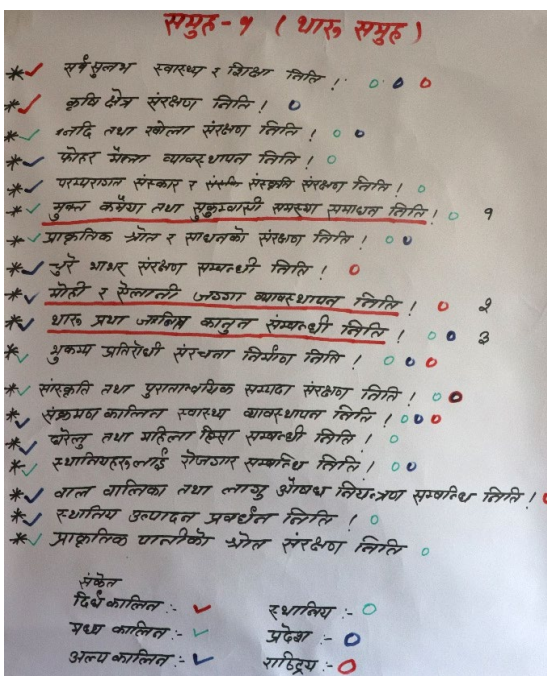 समुह-१ ( थारू समुह )
* ✓ सर्वसुलभ स्वास्थ्य र शिक्षा निति ! ○ ○ ○
* ✓ कृषि क्षेत्र संरक्षण निति ! ○
* ✓ नदि तथा खोला संरक्षण निति ! ○ ○
* ✓ फोहर मैला व्यावस्थापन निति ! ○
* ✓ परम्परागत संस्कार र संस्कृति संरक्षण निति ! ○
* ✓ मुक्त कमैया तथा सुकुम्वासी समस्या समाधन निति ! ○ १
* ✓ प्राकृतिक श्रोत र साधनको संरक्षण निति ! ○ ○
* ✓ चुरे भाभर संरक्षण सम्बन्धी निति ! ○
* ✓ मोही र ऐलानी जग्गा व्यावस्थापन निति ! ○ २
* ✓ थारू प्रथा कानुन संम्बन्धी निति ! ○ ○ ३
* ✓ भुकम्प प्रतिरोधी संरचना निर्माण निति ! ○ ○ ○
* ✓ सांस्कृति तथा पुरातात्वयिक सम्पदा संरक्षण निति ! ○ ○
* ✓ संक्रमण कालिन स्वास्थ्य व्यावस्थापन निति ! ○ ○ ○
* ✓ घरेलु तथा महिला हिंसा सम्बन्धी निति ! ○
* ✓ स्थानियहरूलाई रोजगार सम्बन्धि निति ! ○ ○
* ✓ वाल वालिका तथा लागु औषध नियन्त्रण सम्बन्धि निति ! ○
* ✓ स्थानिय उत्पादन प्रवर्धन निति ! ○
* ✓ प्राकृतिक पानीको श्रोत संरक्षण निति ○
संकेत
दिर्घ कालिन :- ✓ स्थानिय :- ○
मध्य कालिन :- ✓ प्रदेश :- ○
अल्प कालिन :- ✓ राष्ट्रिय :- ○